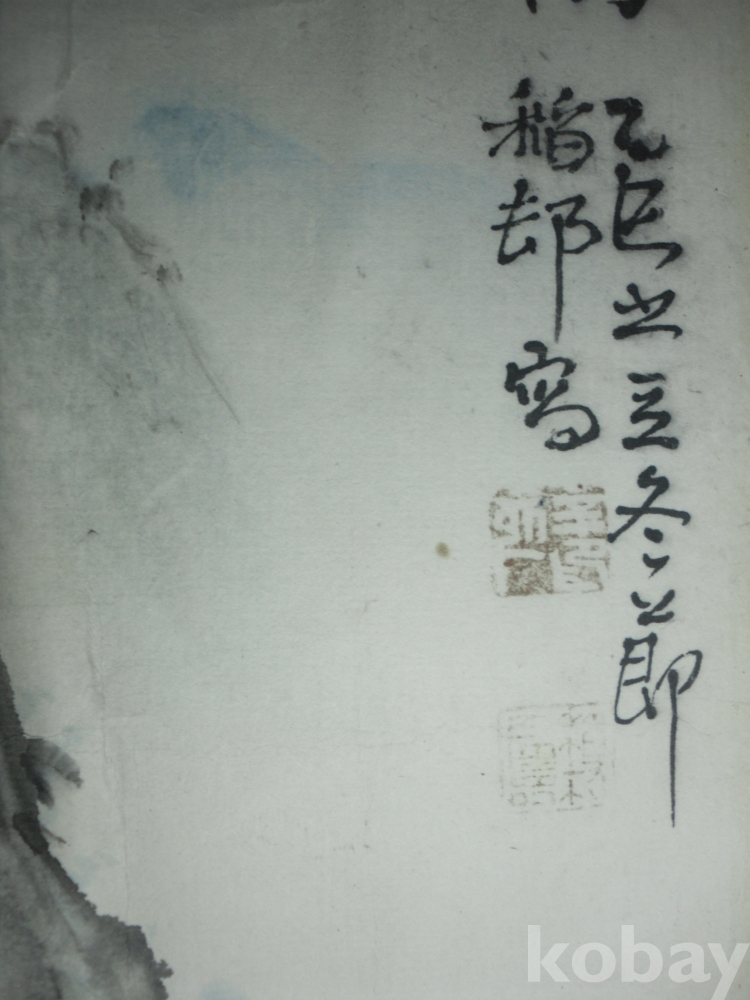 乙巳之立冬節
稻邨寫
kobay